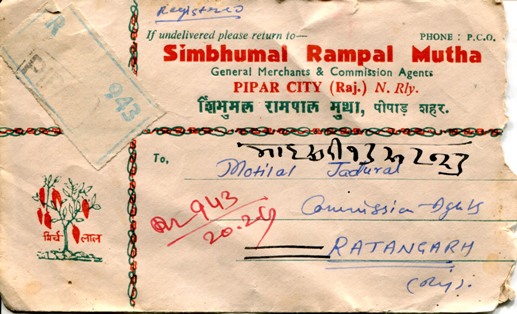 Registered
R
943
If undelivered please return to—
PHONE : P.C.O.
Simbhumal Rampal Mutha
General Merchants & Commission Agents
PIPAR CITY (Raj.) N. Rly.
शिंभुमल रामपाल मुथा, पीपाड़ शहर.
To,
Motilal
943
Commission Agents
RATANGARH
(Raj).
मिर्च लाल